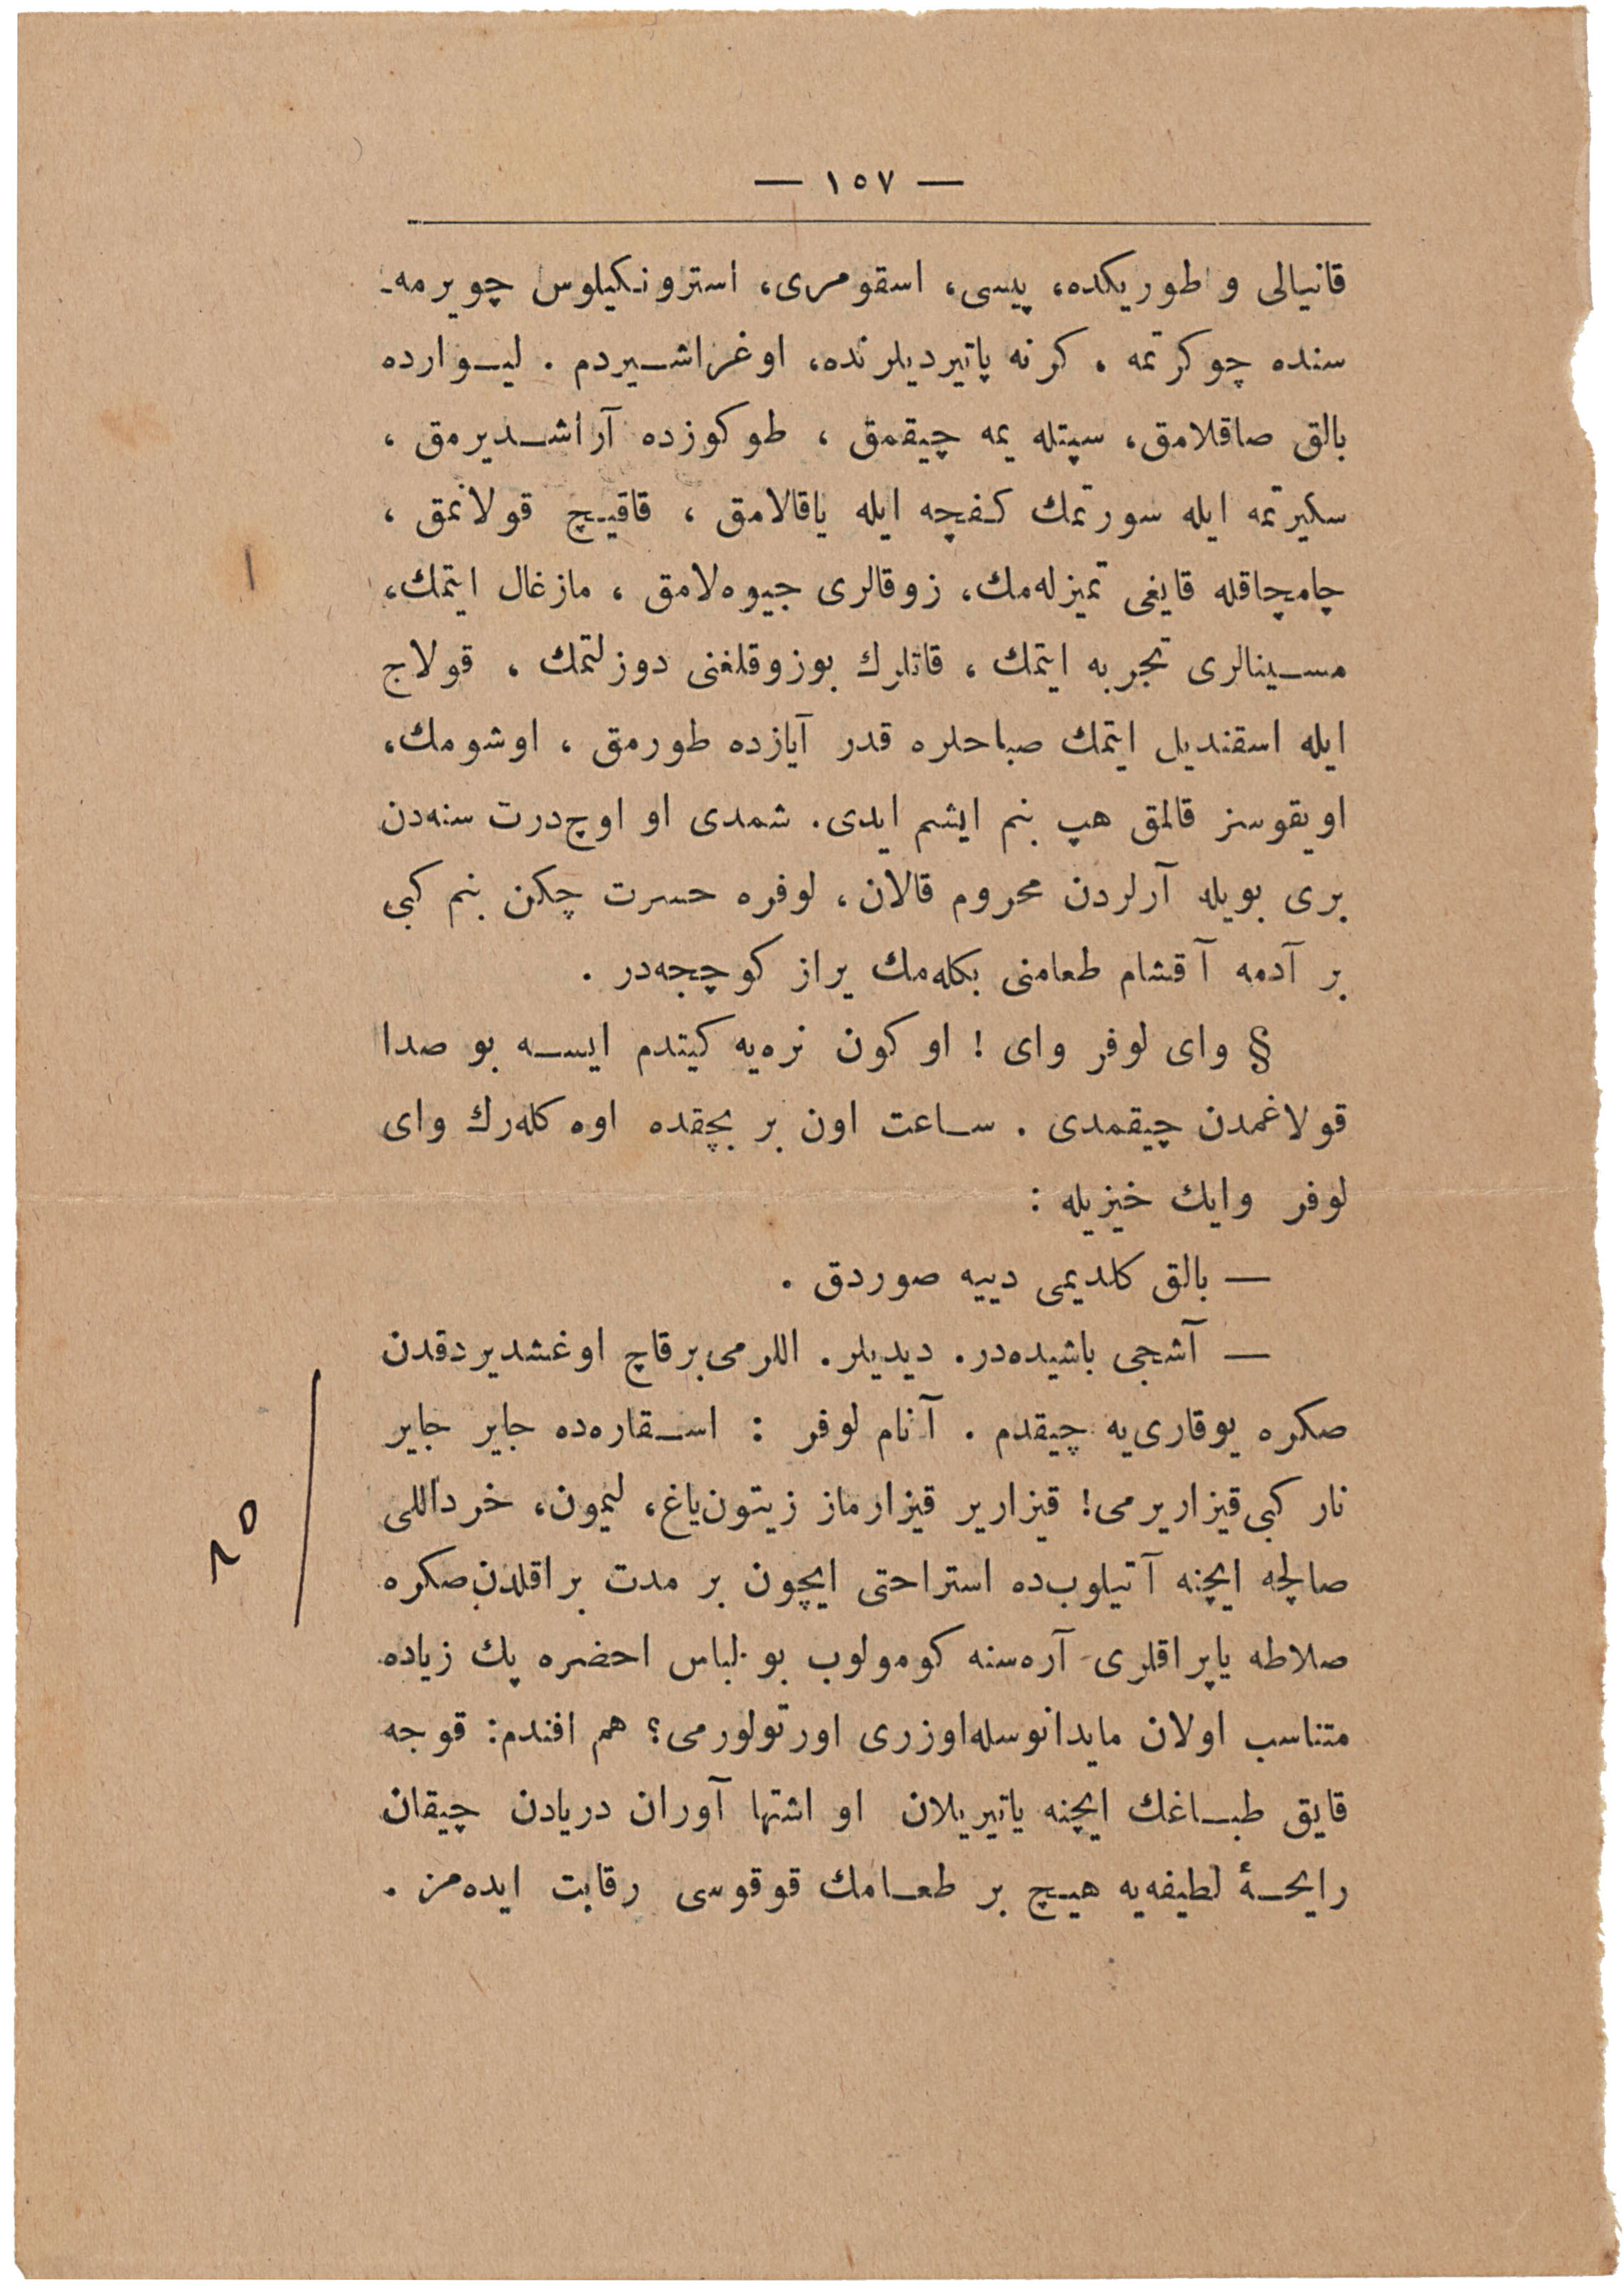 — ١٥٧ —
قانیالی و طوریکده، پیسی، اسقومری، استرونکیلوس چویرمه‌ـ
سنده چوکرتمه ، کرنه پاتیردیلرنده، اوغراشیردم . لیوارده
بالق صاقلامق، سپتله یمه چیقمق ، طوکوزده آراشدیرمق ،
سکیرتمه ایله سورتمك کفچه ایله یاقالامق ، قاقیچ قوللانمق ،
چامچاقله قایغی تمیزله‌مك، زوقالری جیوه‌لامق ، مازغال ایتمك،
مسینالری تجربه ایتمك ، قاتلرك بوزوقلغنی دوزلتمك ، قولاج
ایله اسقندیل ایتمك صباحلره قدر آیازده طورمق ، اوشومك،
اویقوسز قالمق هپ بنم ایشم ایدی. شمدی او اوچ‌درت سنه‌دن
بری بویله آرلردن محروم قالان، لوفره حسرت چکن بنم کبی
بر آدمه آقشام طعامنی بکله‌مك براز کوچجه‌در .
§ وای لوفر وای ! او کون نره‌یه کیتدم ایسه بو صدا
قولاغمدن چیقمدی . ساعت اون بر بچقده اوه کله‌رك وای
لوفر وایك خیزیله :
— بالق کلدیمی دییه صوردق .
— آشجی باشیده‌در. دیدیلر. اللرمی‌برقاچ اوغشدیردقدن
صکره یوقاری‌یه چیقدم . آنام لوفر : اسقاره‌ده جایر جایر
نار کبی‌قیزاریرمی! قیزاریر قیزارماز زیتون‌یاغ، لیمون، خرداللی
صالچه ایچنه آتیلوب‌ده استراحتی ایچون بر مدت براقلدن‌صکره
صلاطه یاپراقلری آره‌سنه کومولوب بو لباس احضره پك زیاده
متناسب اولان مایدانوسله‌اوزری اورتولورمی؟ هم افندم: قوجه
قایق طباغك ایچنه یاتیریلان او اشتها آوران دریادن چیقان
رایحۀ لطیفه‌یه هیچ بر طعامك قوقوسی رقابت ایده‌مز .